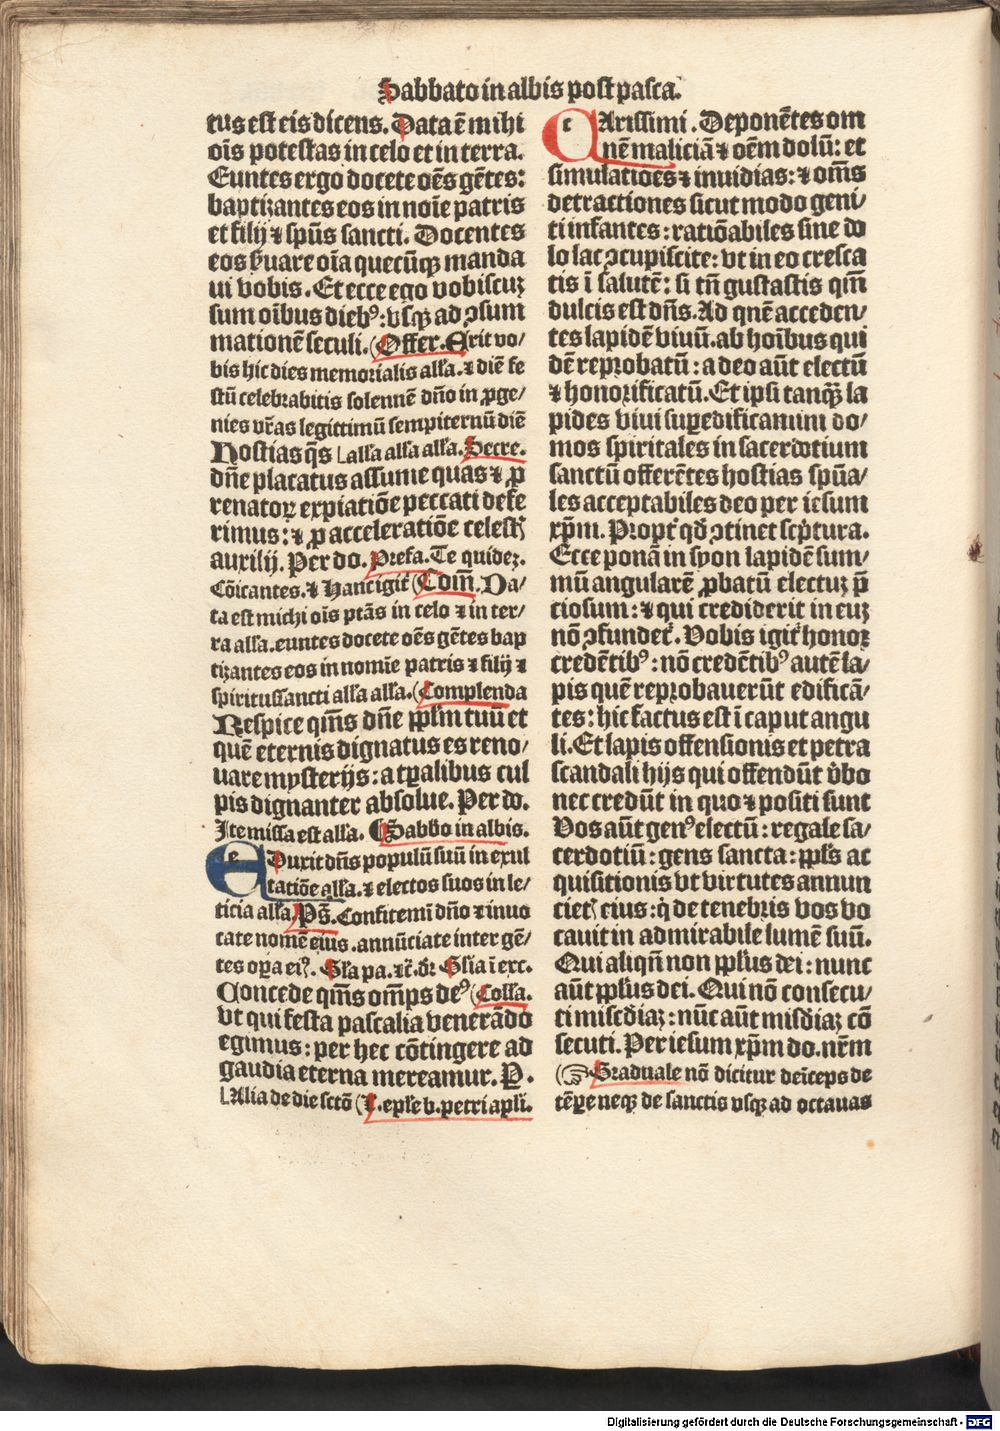 Sabbato in albis post pasca.
tus est eis dicens. Data ē mihi
oīs potestas in celo et in terra.
Euntes ergo docete oēs gētes:
baptizantes eos in noīe patris
et filij ⁊ spūs sancti. Docentes
eos ẜuare oīa quecūqꝫ manda
ui vobis. Et ecce ego vobiscuꝫ
sum oībus diebꝰ: vsqꝫ ad ꝯsum
mationē seculi. (Offer. Erit vo/
bis hic dies memorialis alla. ⁊ diē fe
stū celebrabitis solennē dn̄o in ꝓge/
nies vr̄as legittimū sempiternū diē
Hostias q̄s ⌊alla alla alla. Secre.
dn̄e placatus assume quas ⁊ ꝓ
renatoꝝ expiatiōe peccati defe
rimus: ⁊ ꝓ acceleratiōe celestꝭ
auxilij. Per do. Prefa. Te quideꝫ.
Cōicantes. ⁊ Hanc igit᷑ (Cōm̄. Da/
ta est michi oīs ptās in celo ⁊ in ter/
ra alla. euntes docete oēs gētes bap
tizantes eos in nomīe patris ⁊ filij ⁊
spiritussancti alla alla. (Complenda
Respice qm̄s dn̄e pplm̄ tuū et
quē eternis dignatus es reno/
uare mysterijs: a tꝑalibus cul
pis dignanter absolue. Per do.
Ite missa est alla. Sabbo in albis.
EDuxit dn̄s populū suū in exul
tatiōe alla. ⁊ electos suos in le/
ticia alla. Ps̄. Confitemī dn̄o ⁊ inuo
cate nomē eius. annūciate inter gē/
tes oꝑa eiꝰ. Gla pa. ⁊c̄. dr̄ Glia ī exc.
Concede qm̄s om̄ps deꝰ (Colla.
vt qui festa pascalia venerādo
egimus: per hec cōtingere ad
gaudia eterna mereamur. P.
⌊Alia de die sctō (L. eple b. petri apli.
CArissimi. Deponētes om
nē maliciā ⁊ oēm dolū: et
simulatiōes ⁊ inuidias: ⁊ om̄s
detractiones sicut modo geni/
ti infantes: ratiōabiles sine do
lo lac ꝯcupiscite: vt in eo cresca
tis ī salutē: si tn̄ gustastis qm̄
dulcis est dn̄s. Ad quē acceden/
tes lapidē viuū. ab hoībus qui
dē reprobatū: a deo aūt electū
⁊ honorificatū. Et ipsi tanqꝫ la
pides viui suꝑedificamini do/
mos spiritales in sacerdotium
sanctū offerētes hostias spūa/
les acceptabiles deo per iesum
xp̄m. Propt᷑ qd̄ ꝯtinet scp̄tura.
Ecce ponā in syon lapidē sum/
mū angularē ꝓbatū electuꝫ p̄
ciosum: ⁊ qui crediderit in euꝫ
nō ꝯfundet᷑. Vobis igit᷑ honoꝛ
credētibꝰ: nō credētibꝰ autē la/
pis quē reprobauerūt edificā/
tes: hic factus est ī caput angu
li. Et lapis offensionis et petra
scandali hijs qui offendūt v̄bo
nec credūt in quo ⁊ positi sunt
Vos aūt genꝰ electū: regale sa/
cerdotiū: gens sancta: ppls ac
quisitionis vt virtutes annun
cietꝭ eius: q̇ de tenebris vos vo
cauit in admirabile lumē suū.
Qui aliqn̄ non pplus dei: nunc
aūt pplus dei. Qui nō consecu/
ti mis̄c̄diaꝫ: nūc aūt mis̄diaꝫ cō
secuti. Per iesum xp̄m do. nr̄m
(☞ Graduale nō dicitur deīceps de
tēꝑe neqꝫ de sanctis vsqꝫ ad octauas
Digitalisierung gefördert durch die Deutsche Forschungsgemeinschaft - DFG